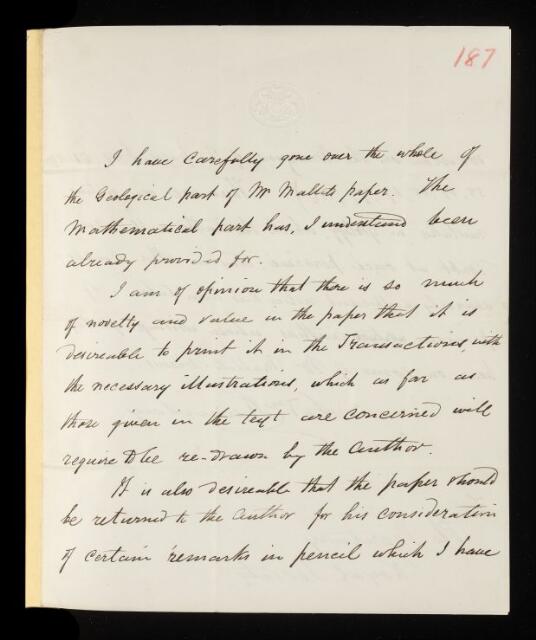 187
I have carefully gone over the whole of
the Geological part of Mr Mallets paper. The
Mathematical part has, I understand been
already provided for.
I am of opinion that there is so much
of novelty and value in the paper that it is
desireable to print it in the Transactions, with
the necessary illustrations, which as far as
those given in the text are concerned will
require to be re-drawn by the Author.
It is also desireable that the paper should
be returned to the Author for his consideration
of certain remarks in pencil which I have